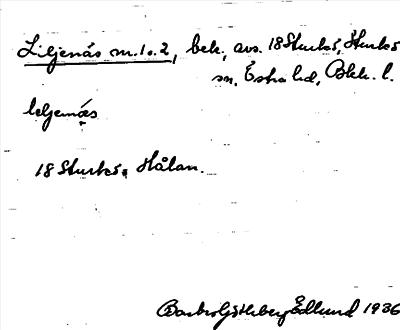 Liljenäs nr. 1 o. 2, bek. avs. 18 Sturkö, Sturkö
sn, Östra hd, Blek. l.
leljenäs
18 Sturkö, Hålan.
Edlund 1936